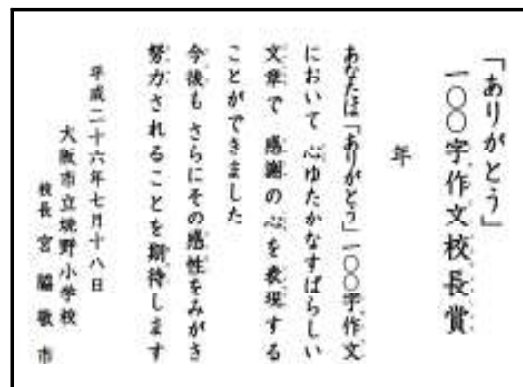 「ありがとう」
一〇〇字作文校長賞
年
あなたは「ありがとう」一〇〇字作文
において 心ゆたかなすばらしい
文章で 感謝の心を表現する
ことができました
今後も さらにその感性をみがき
努力されることを期待します
平成二十六年七月十八日
大阪市立境野小学校
校長 宮脇敬市